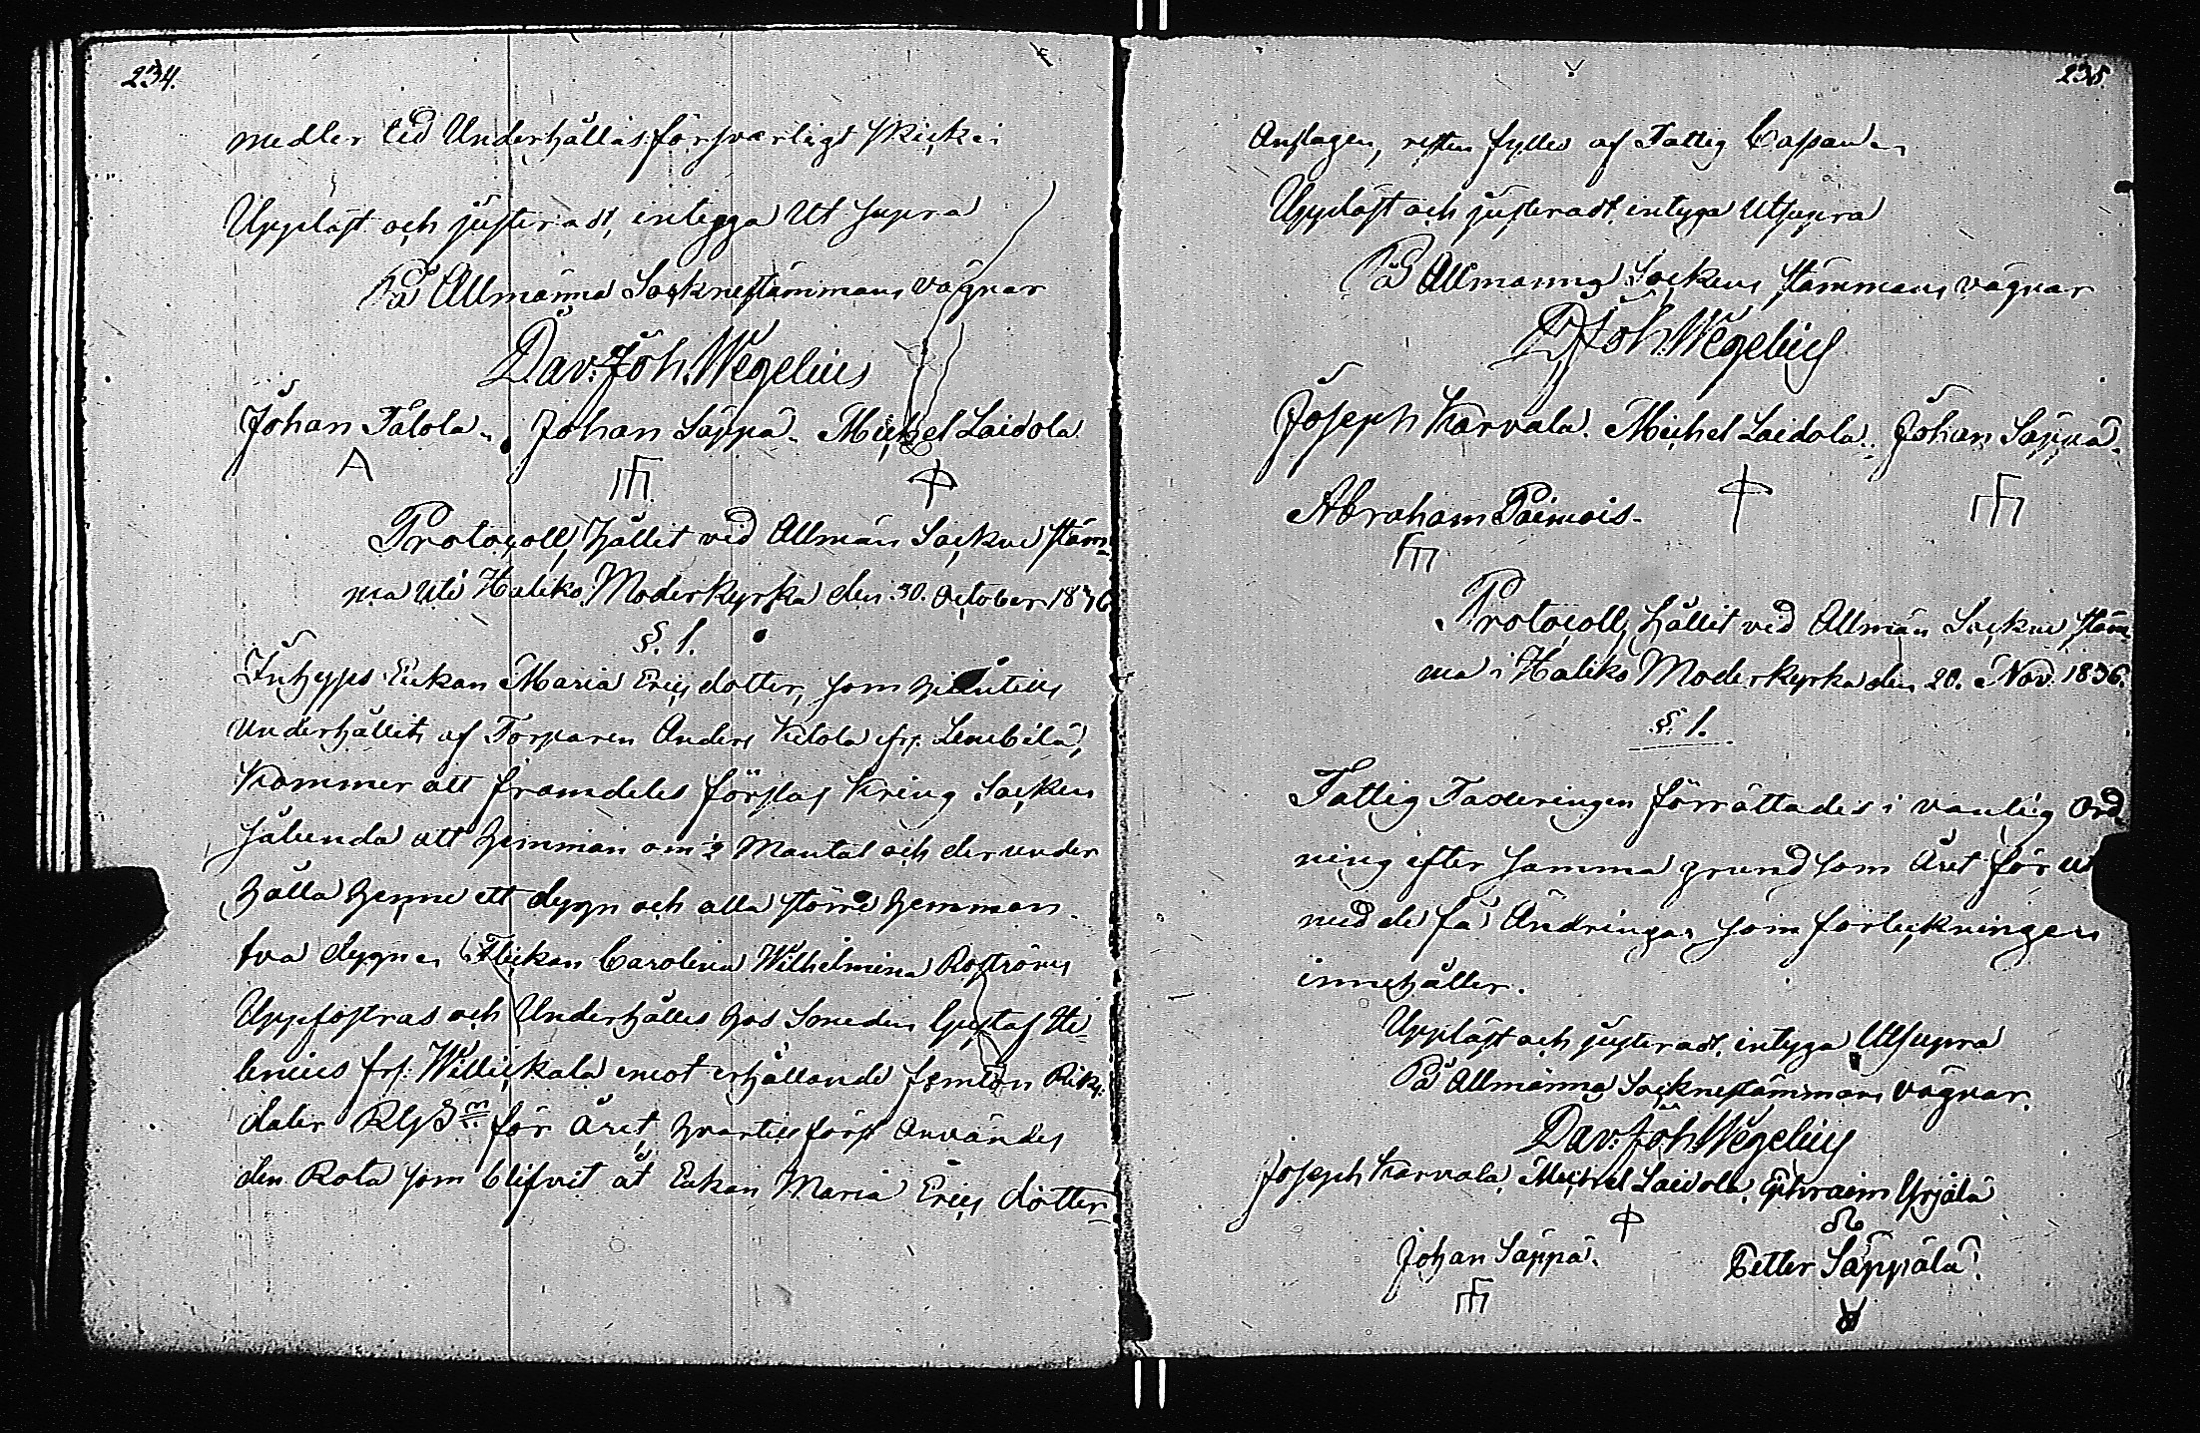 234.
medler tid Underhållas försvarligt skick.
Uppläst och justeradt, intygga Ut supra
På Allmänna Socknestämmans vägnar
Dav: Joh. Wegelius
Johan Tålola. Johan Säppä. Michel Laidola
Protocoll, hållit vid Allmän Sockne stäm-
ma uti Haliko Moderkyrka den 30. October 1836
§. 1.
Inhyses Enkan Maria Erics dotter, som hittills
Underhållits af Torparen Anders Kelola frs.
Kommer att framdeles förslas kring Socken
sålunda att hemman om ½ Mantal och derunder
hålla henne ett dygn och alla större hemman
tva dygn. Flickan Carolina Wilhelmina Roströms
Uppfostras och Underhålles hos Smeden Gustaf He-
lenius frs. Willickala emot erhållande femton Riks-
daler RGS för Året, hvartill först Användes
den Rota som blifvit åt Enkan Maria Erics dotter
235.
Anslagen, resten fylles af Fattig Cassan.
Uppläst och justeradt, intyga Utsupra
På Allmänna Sockens stämmans vägnar
D Joh. Wegelius
Joseph Karvala. Michel Laidola. Johan Säppä.
Abraham Paimais.
Protocoll, hållit vid Allmän Sockne stäm-
ma i Haliko Moderkyrka den 20. Nov. 1836.
§. 1.
Fattig Taxeringen förrättades i vanlig Ord-
ning efter samma grund som Året förut
med de få Ändringar som förteckningen
innehåller.
Uppläst och justeradt, intyga Utsupra
På Allmänna Socknestämmans vägnar.
Dav: Joh. Wegelius
Joseph Karvala. Michel Laidola. Ephraim Yrjälä
Johan Säppä. Petter Säppälä.